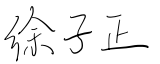 徐子正